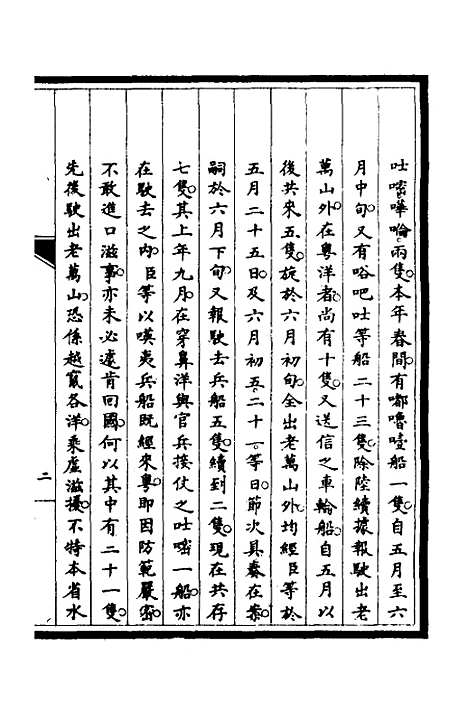 吐嘧嘩喻兩隻本年春間有嘟嚕噎船一隻自五月至六
月中旬又有咯吧吐等船二十三隻除陸續據報駛出老
萬山外在粤洋者尚有十隻又送信之車輪船自五月以
後共來五隻旋於六月初旬全出老萬山外均經臣等於
五月二十五日及六月初五二十一等日節次具奏在案
嗣於六月下旬又報駛去兵船五隻續到二隻現在共存
七隻其上年九月在穿鼻洋與官兵接仗之吐嘧一船亦
在駛去之内臣等以嘆夷兵船既經來粤即因防範嚴密
不敢進口滋事亦未必遽肯回國何以其中有二十一隻
先後駛出老萬山恐係越竄各洋乘虛滋擾不特本省水
二